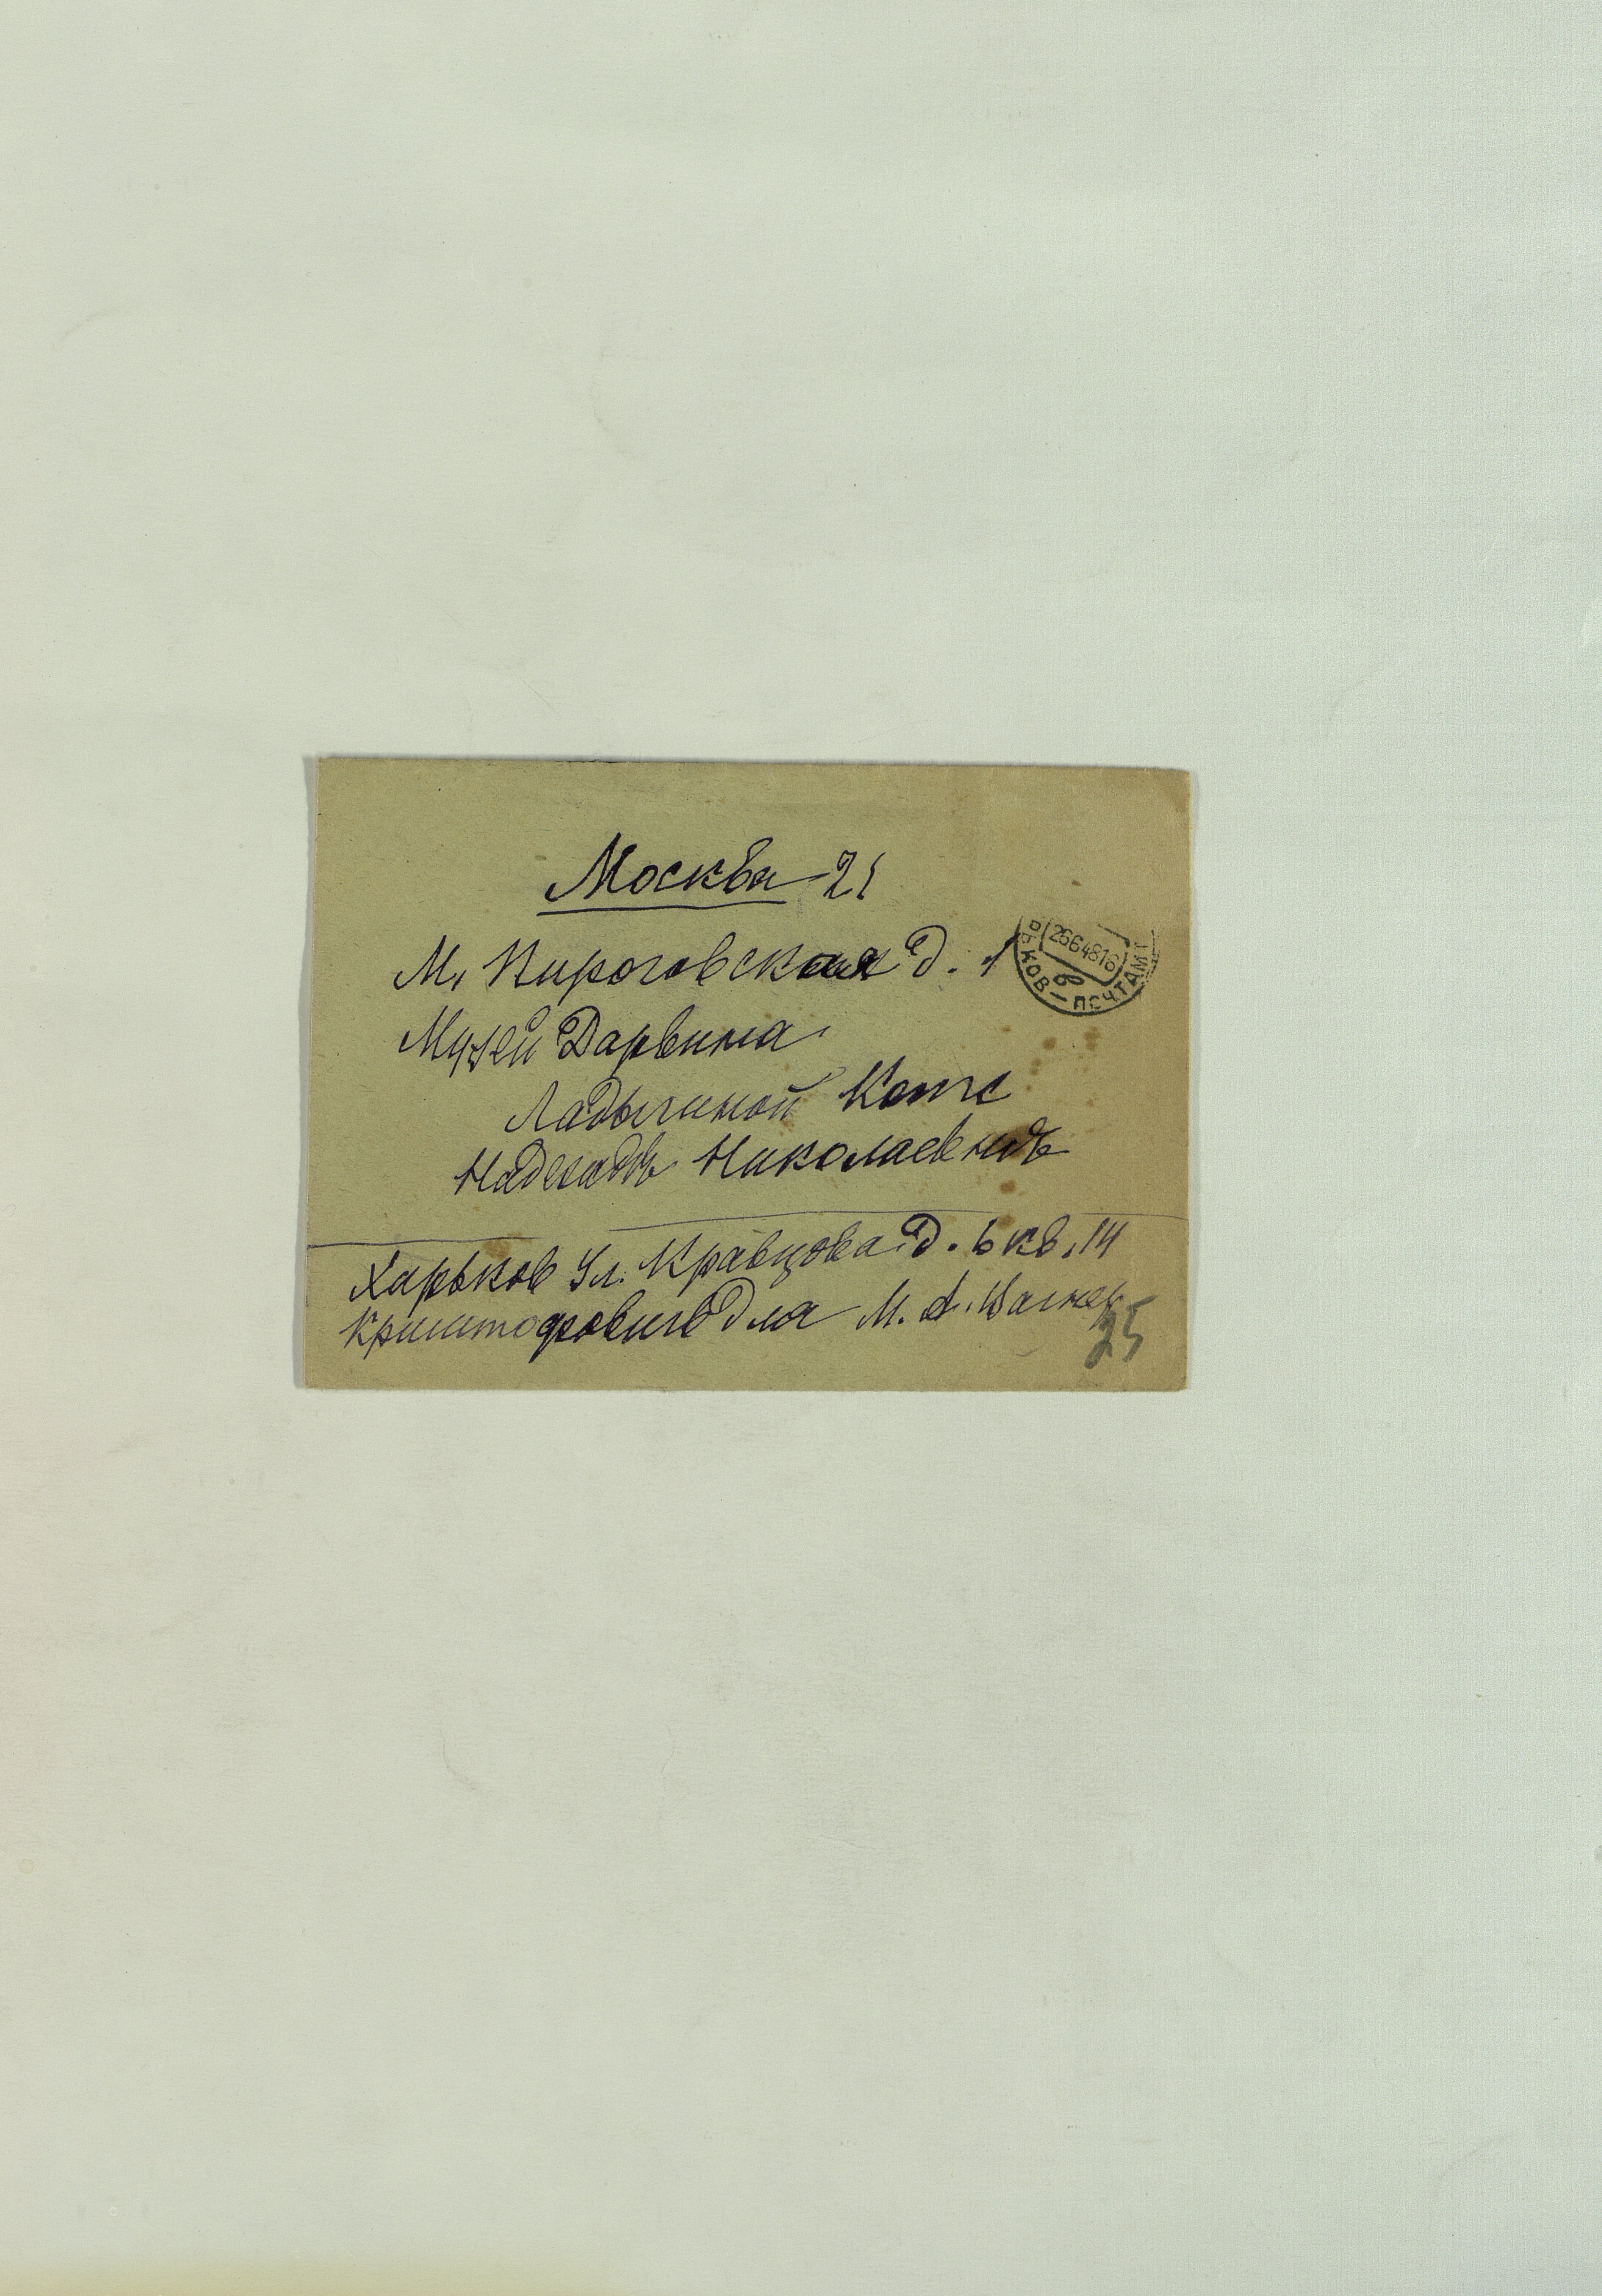 Москва 21
М. Пироговская д. 1
Музей Дарвина
Ладыгиной Котс
Надежде Николаевне
Харьков Ул. Кравцова д. 6 кв. 14
Криштофович для М. А.
25
26 6 48 16
КОВ - ПОЧТАМТ